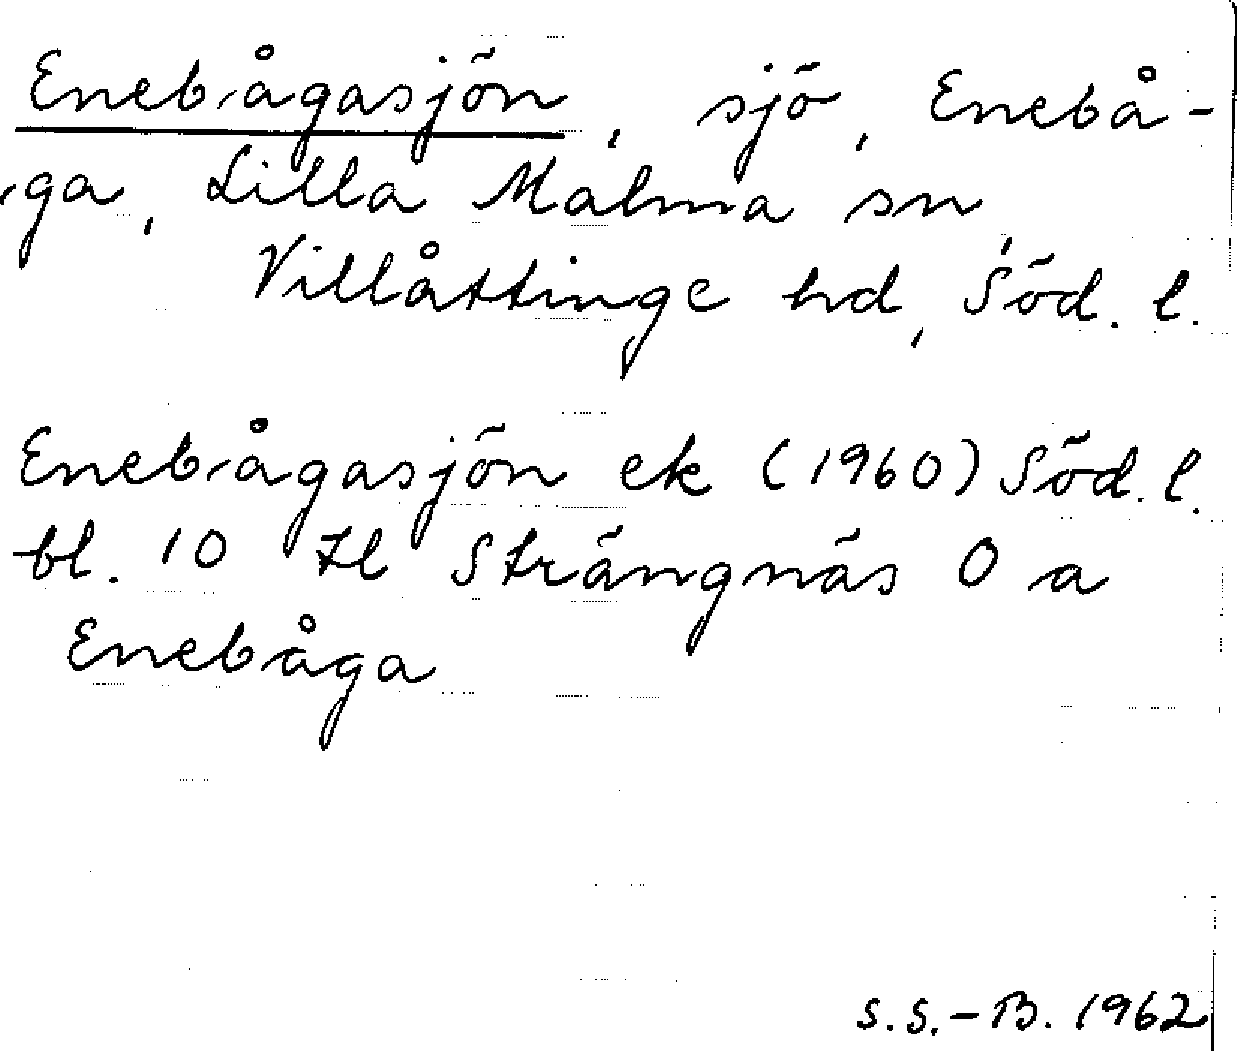 Enebågasjön, sjö, Enebå-
ga, Lilla Malma sn,
Villåttinge hd, Söd. l.
Enebågasjön ek (1960) Söd. l.
bl. 10 tl Strängnäs O a
Enebåga
S.S.-B. 1962